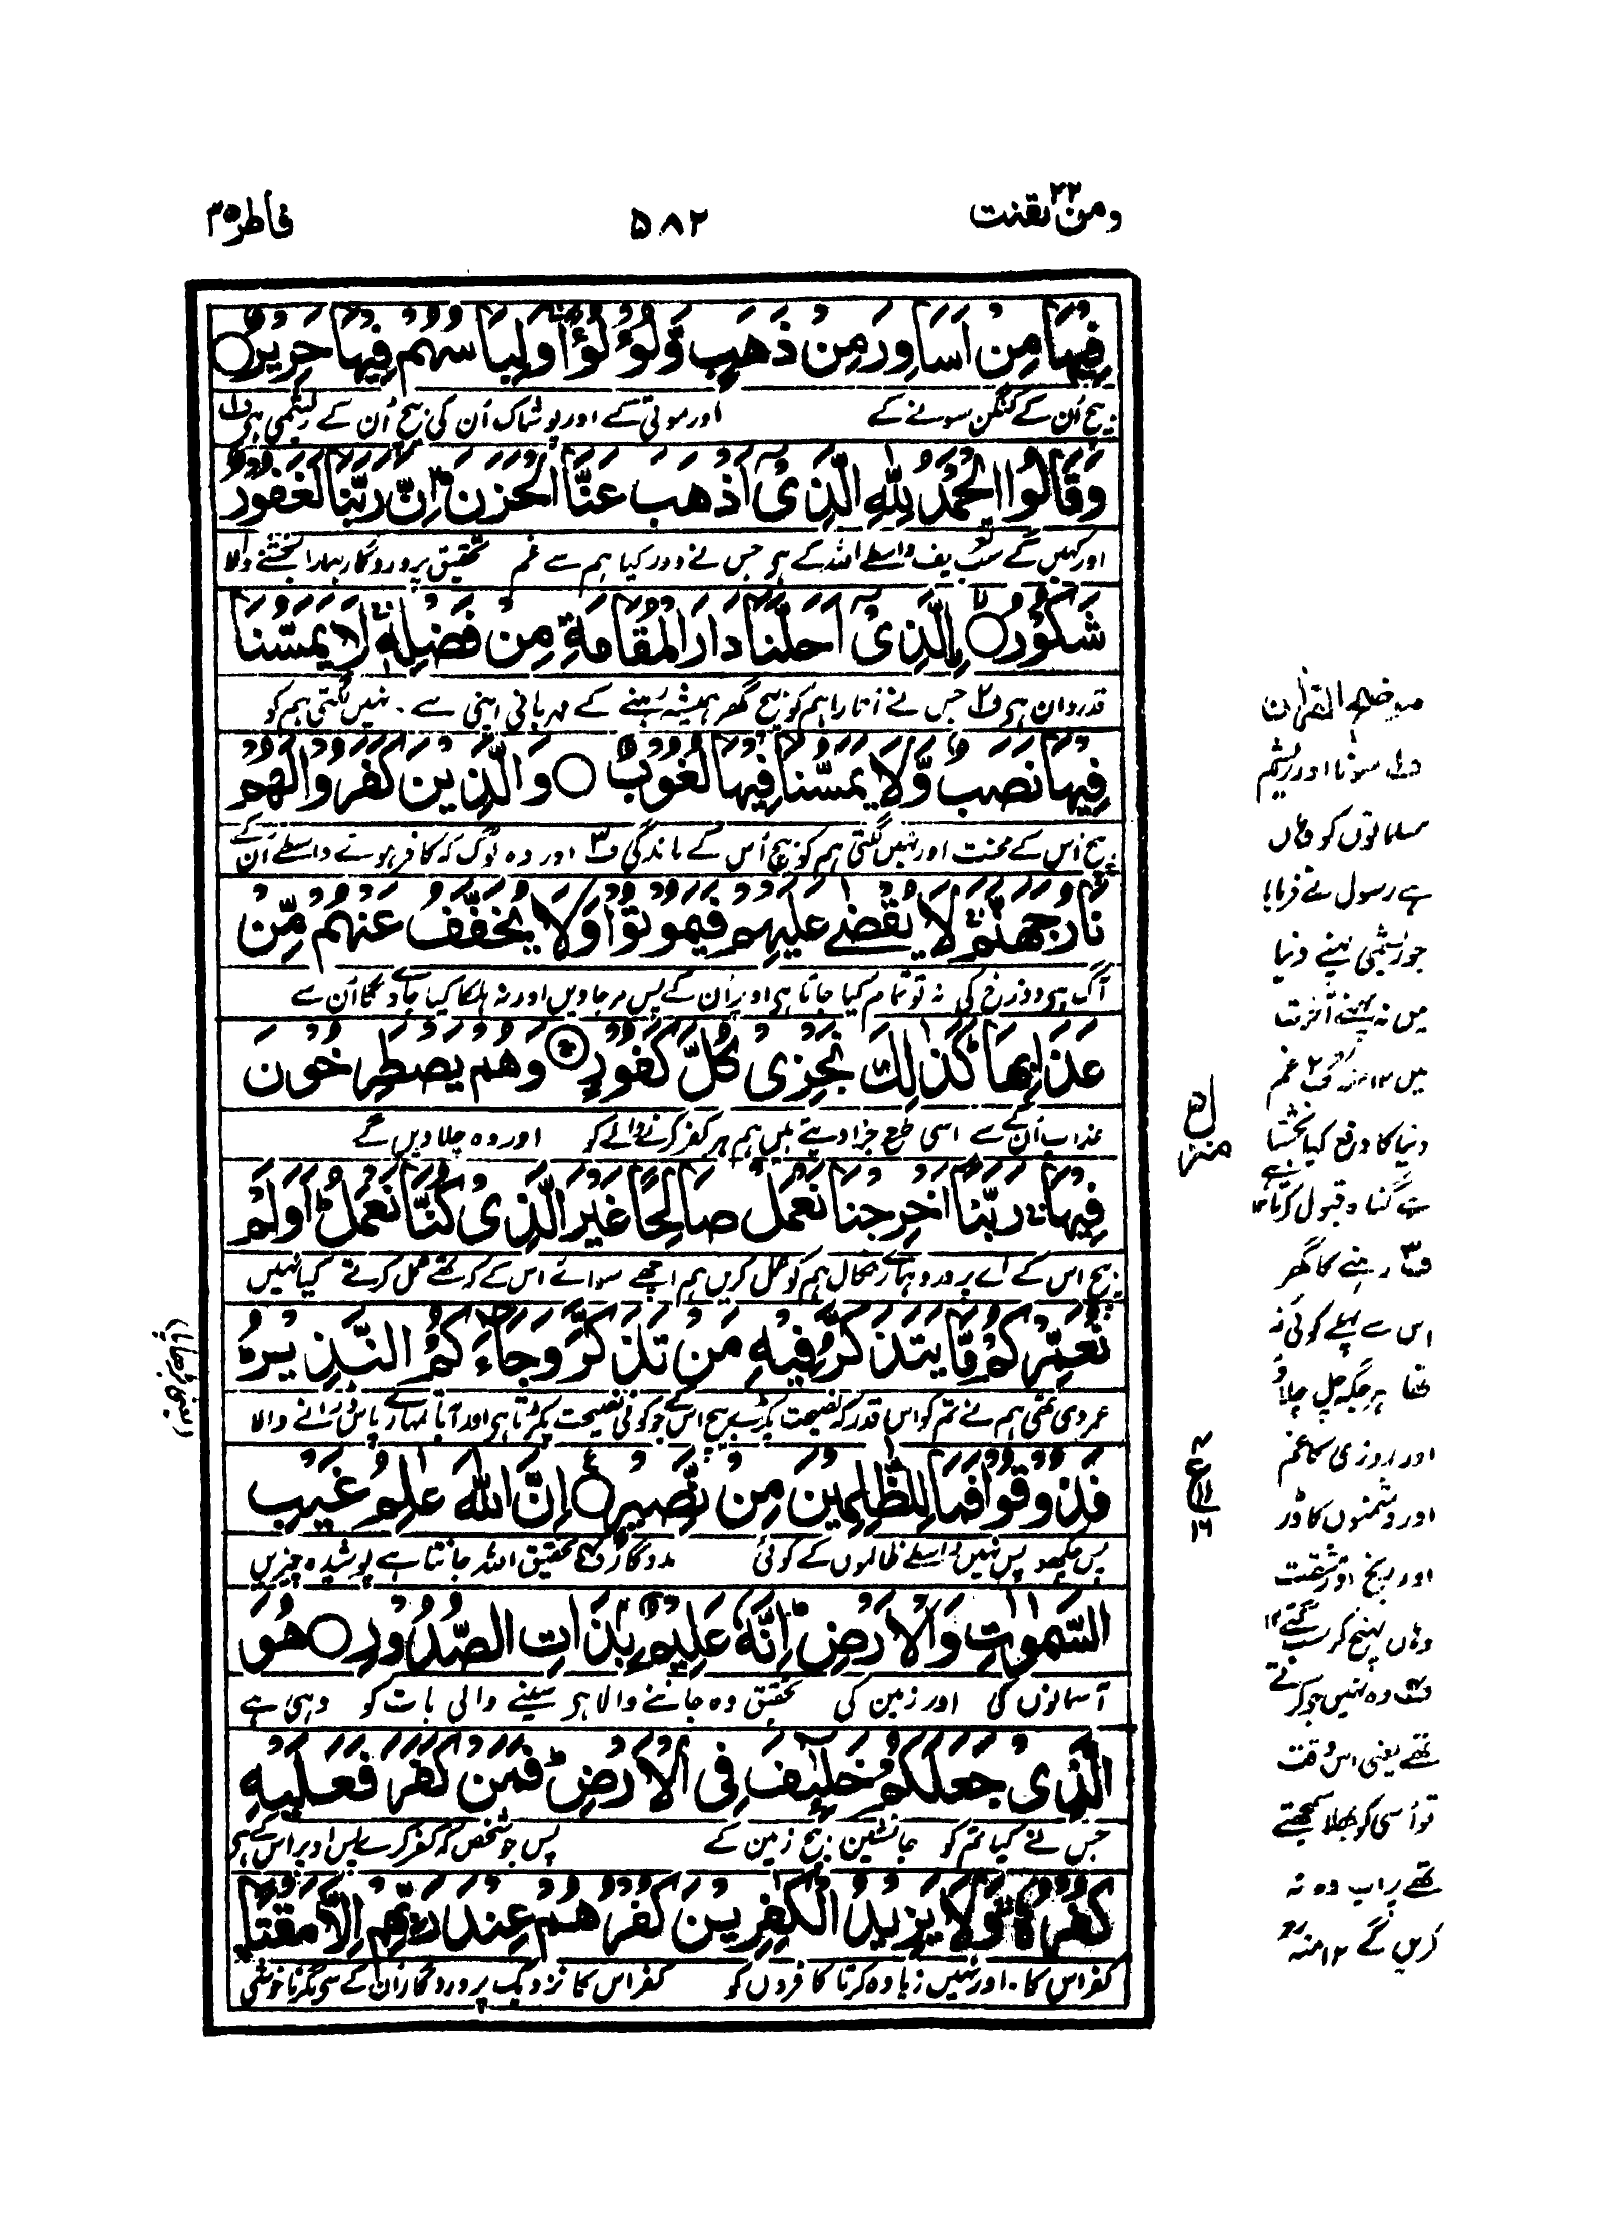 ومن یقنت ۲۲
۵۸۲
فاطر ۳۵
فِيهَا مِنْ أَسَاوِرَ مِنْ ذَهَبٍ وَّلُؤْلُؤًا وَلِبَاسُهُمْ فِيهَا حَرِيرٌ
بیچ اُن کے کنگن سونے کے اور موتی کے اور پوشاک اُن کی بیچ اُن کے ریشمی ہے ف۱
وَقَالُوا الْحَمْدُ لِلّٰهِ الَّذِىْ أَذْهَبَ عَنَّا الْحَزَنَ إِنَّ رَبَّنَا لَغَفُوْرٌ
اور کہیں گے سب تعریف واسطے اللہ کے ہی جس نے دور کیا ہم سے غم تحقیق پروردگار ہمارا بخشنے والا
شَكُوْرٌ الَّذِىْ أَحَلَّنَا دَارَ الْمُقَامَةِ مِنْ فَضْلِهٖ لَا يَمَسُّنَا
قدردان ہی ف۲ جس نے اُتارا ہم کو بیچ گھر ہمیشہ رہنے کے مہربانی اپنی سے . نہیں لگتی ہم کو
فِيهَا نَصَبٌ وَّلَا يَمَسُّنَا فِيهَا لُغُوْبٌ وَالَّذِيْنَ كَفَرُوْا لَهُمْ
بیچ اُس کے محنت اور نہیں لگتی ہم کو بیچ اُس کے ماندگی ف۳ اور وہ لوگ کہ کافر ہوئے واسطے اُن کے
نَارُ جَهَنَّمَ لَا يُقْضٰى عَلَيْهِمْ فَيَمُوْتُوْا وَلَا يُخَفَّفُ عَنْهُمْ مِّنْ
آگ ہی دوزخ کی نہ تو تمام کیا جاتا ہی اوپر اُن کے پس مر جاویں اور نہ ہلکا کیا جاوے گا اُن سے
عَذَابِهَا كَذٰلِكَ نَجْزِىْ كُلَّ كَفُوْرٍ وَهُمْ يَصْطَرِخُوْنَ
عذاب اُن کے سے اسی طرح جزا دیتے ہیں ہم ہر کفر کرنے والے کو اور وہ چلاویں گے
فِيهَا رَبَّنَا أَخْرِجْنَا نَعْمَلْ صَالِحًا غَيْرَ الَّذِىْ كُنَّا نَعْمَلُ أَوَلَمْ
بیچ اس کے اے پروردگار ہمارے نکال ہم کو عمل کریں ہم اچھے سوائے اُس کے کہ تھے عمل کرتے کیا نہیں
نُعَمِّرْكُمْ مَّا يَتَذَكَّرُ فِيْهِ مَنْ تَذَكَّرَ وَجَاءَكُمُ النَّذِيْرُ
عمر دی تھی ہم نے تم کو اس قدر کہ نصیحت پکڑے بیچ اُس کے جو کوئی نصیحت پکڑتا ہی اور آیا تمہارے پاس ڈرانے والا
فَذُوْقُوْا فَمَا لِلظّٰلِمِيْنَ مِنْ نَّصِيْرٍ إِنَّ اللّٰهَ عٰلِمُ غَيْبِ
پس چکھو پس نہیں واسطے ظالموں کے کوئی مددگار ف۴ تحقیق اللہ جانتا ہے پوشیدہ چیزیں
السَّمٰوٰتِ وَالْأَرْضِ إِنَّهٗ عَلِيْمٌ بِذَاتِ الصُّدُوْرِ هُوَ
آسمانوں کی اور زمین کی تحقیق وہ جاننے والا ہی سینے والی بات کو وہی ہے
الَّذِىْ جَعَلَكُمْ خَلٰٓئِفَ فِى الْأَرْضِ فَمَنْ كَفَرَ فَعَلَيْهِ
جس نے کیا تم کو جانشین بیچ زمین کے پس جو شخص کہ کفر کرے پس اوپر اُس کے ہی
كُفْرُهٗ وَلَا يَزِيْدُ الْكٰفِرِيْنَ كُفْرُهُمْ عِنْدَ رَبِّهِمْ إِلَّا مَقْتًا
کفر اس کا . اور نہیں زیادہ کرتا کافروں کو کفر اُس کا نزدیک پروردگار اُن کے کے مگر ناخوشی
موضح القرآن
ف۱ سونا اور ریشم
مسلمانوں کو وہاں
ہے رسول نے فرمایا
جو ریشمی پہنے دنیا
میں نہ پہنے آخرت
میں ۱۲ منہ ف۲ غم
دنیا کا دفع کیا بخشتا ہے
گناہ قبول کرتا ہے
ف۳ رہنے کا گھر
اس سے پہلے کوئی نہ
تھا ہر جگہ چل چلاؤ
اور روزی کا غم
اور دشمنوں کا ڈر
اور رنج اور مشقت
وہاں پہنچ کر سب گئے ۱۲
ف۴ وہ نہیں جو کرتے
تھے یعنی اس وقت
تو اُسی کو بھلا سمجھتے
تھے پر اب وہ نہ
کریں گے ۱۲ منہ
منزل ۵
ع
۱۶